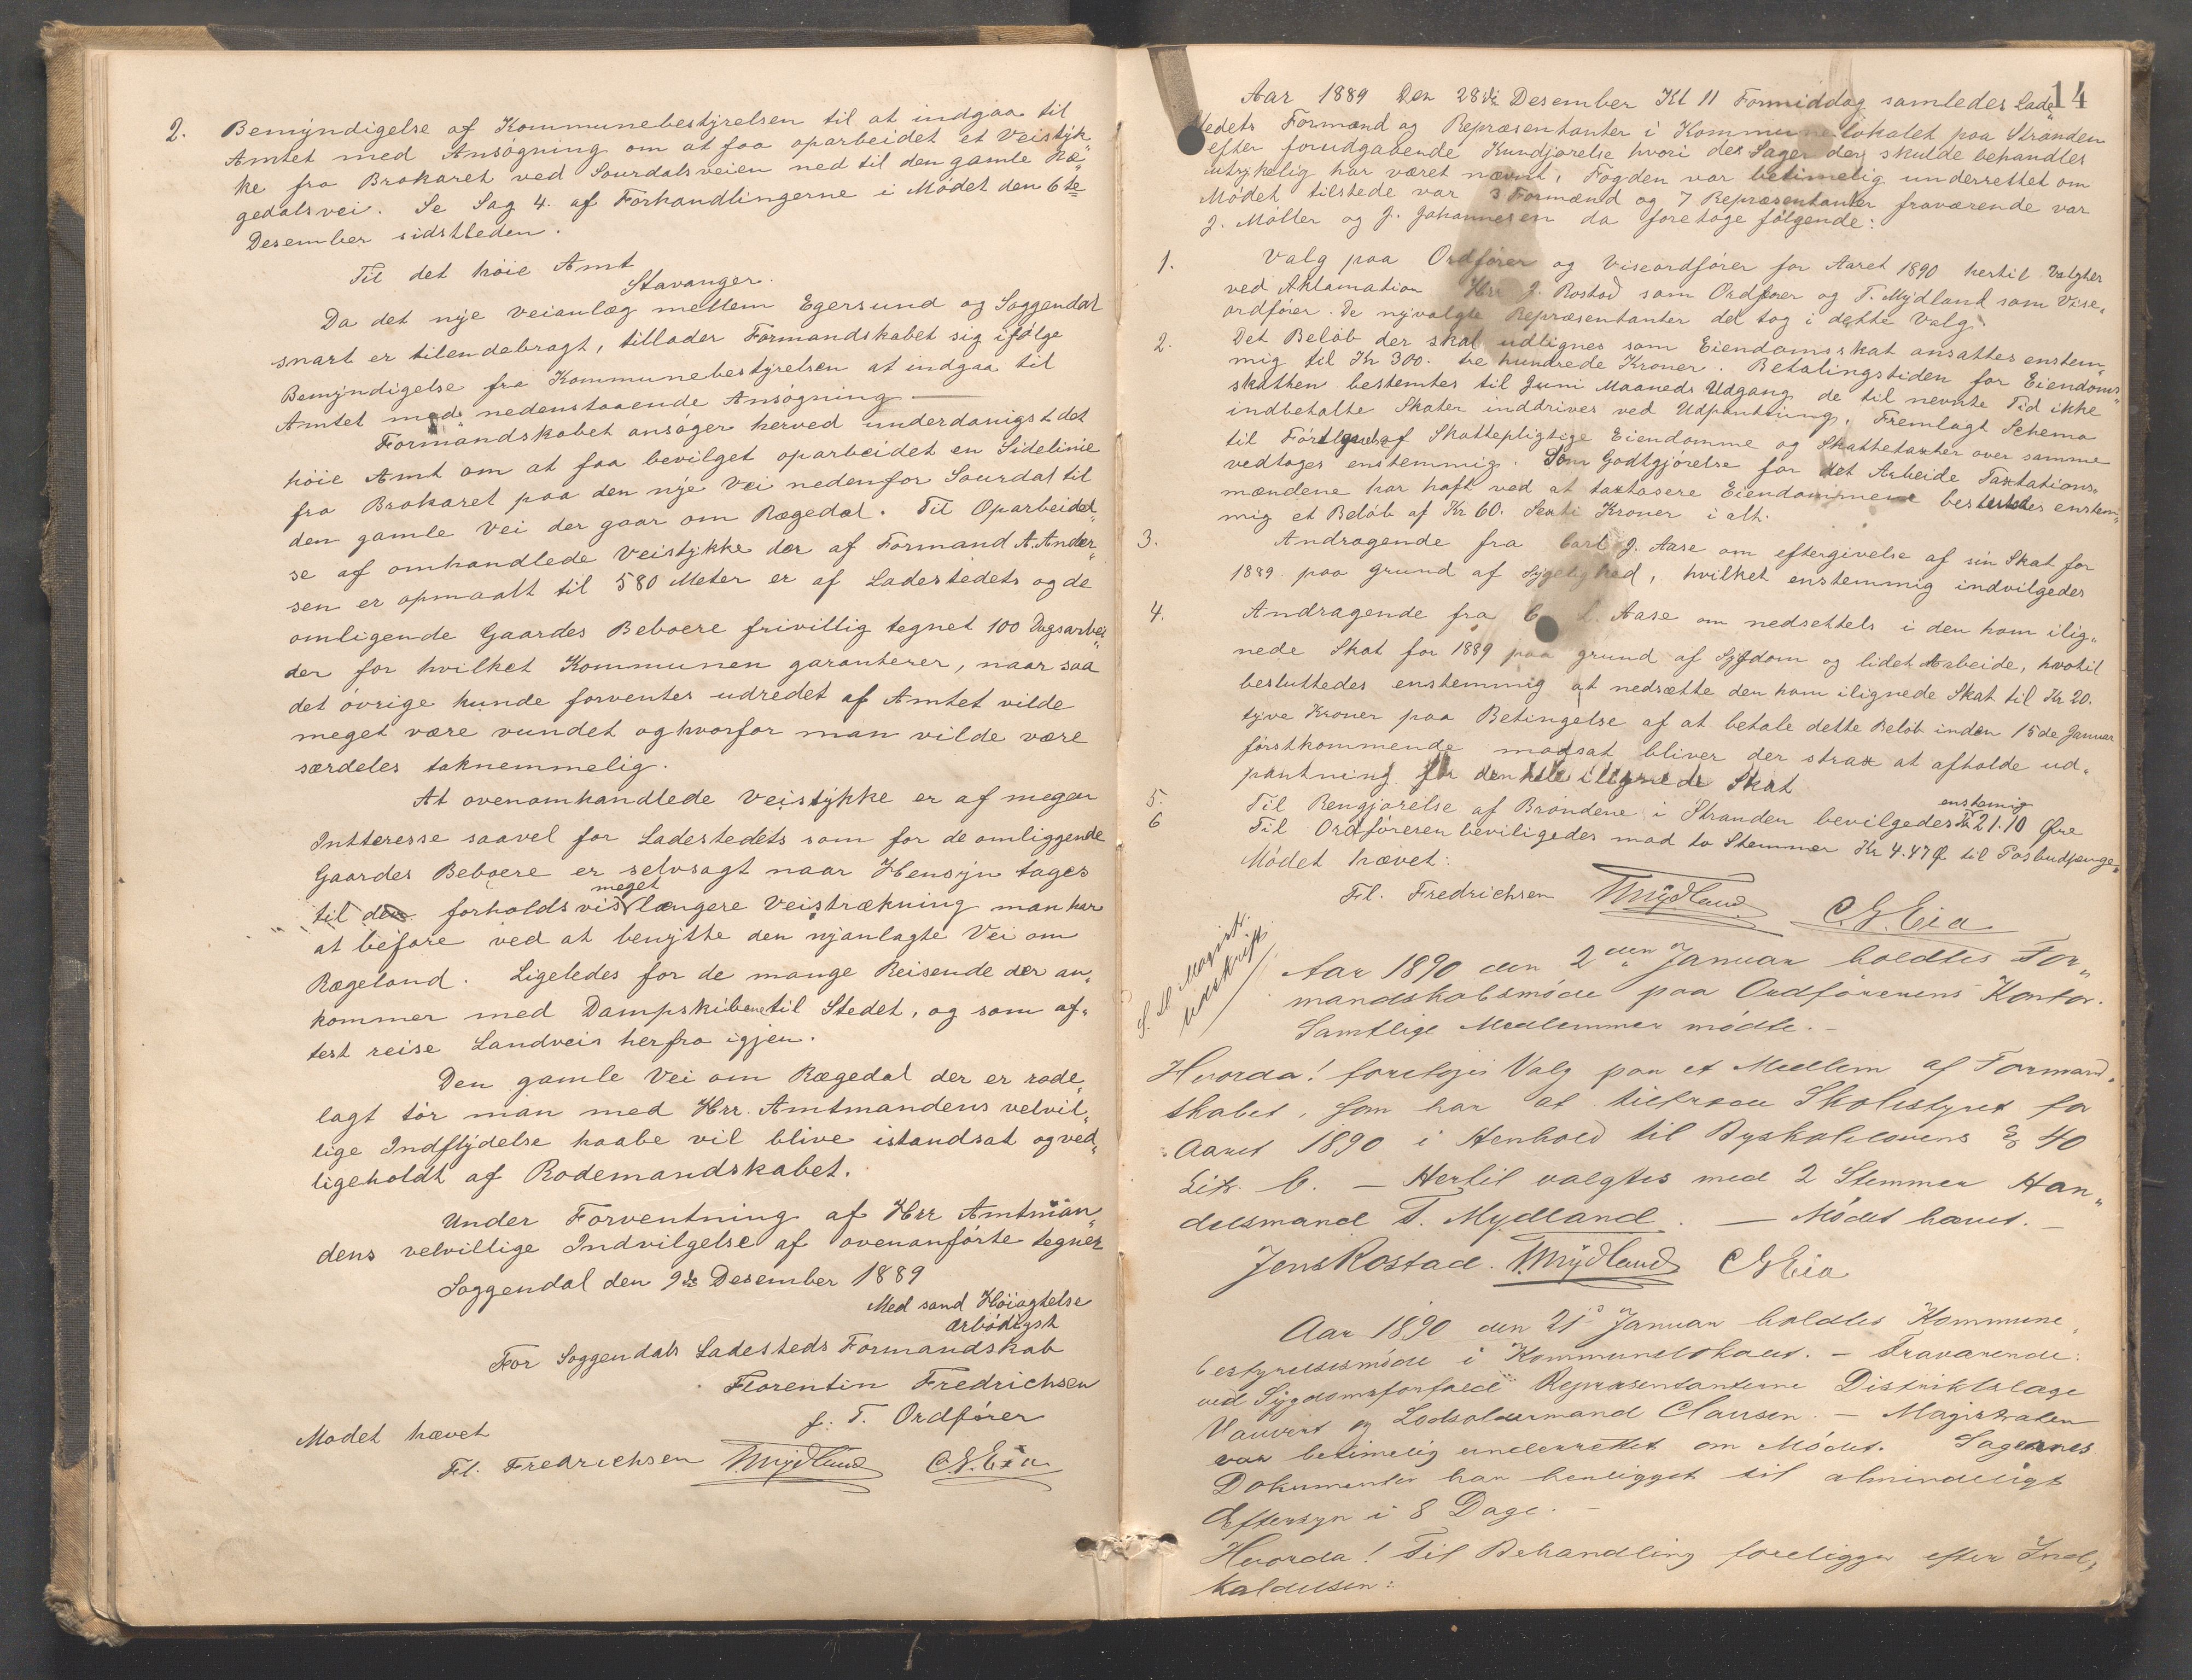 2. Bemyndigelse af Kommunebestyrelsen til at indgaa til
Amtet med Ansögning om at faa oparbeidet et Veistyk„
ke fra Brokaret ved Sourdalsveien ned til den gamle Ræ„
gedalsvei. Se Sag 4. af Forhandlingerne i Mödet den 6te
Desember sidstleden.
Til det höie Amt
Stavanger.
Da det nye veianlæg mellem Egersund og Soggendal
snart er tilendebragt, tillader Formandskabet sig ifölge
Bemyndigelse fra Kommunebestyrelsen at indgaa til
Amtet med nedenstaaende Ansögning —
Formandskabet ansöger herved underdanigst det
höie Amt om at faa bevilget oparbeidet en Sidelinie
fra Brokaret paa den nye Vei nedenfor Sourdal til
den gamle Vei der gaar om Rægedal. Til Oparbeidel„
se af omhandlede Veistykke der af Formand A. Ander„
sen er opmaalt til 580 Meter er af Ladestedets og de
omligende Gaardes Beboere frivillig tegnet 100 Dagsarbei„
der for hvilket Kommunen garanterer, naar saa
det övrige kunde forventes udredet af Amtet vilde
meget være vundet og hvorfor man vilde være
særdeles taknemmelig.
At ovenomhandlede Veistykke er af megen
Intteresse saavel for Ladestedets som for de omliggende
Gaardes Beboere er selvsagt naar Hensyn tages
meget
til den forholdsvis længere Veistrækning man har
at befare ved at benytte den nyanlagte Vei om
Rægeland. Ligeledes for de mange Reisende der an„
kommer med Dampskibene til Stedet, og som af„
test reise Landveis herfra igjen.
Den gamle Vei om Rægedal der er rode„
lagt tör man med Hrr. Amtmandens velvil„
lige Indflydelse haabe vil blive istandsat og ved„
ligeholdt af Rodemandskabet.
Under Forventning af Hrr Amtman„
dens velvillige Indvilgelse af ovenanförte tegner
Soggendal den 9de Desember 1889
Med sand Höiagtelse
ærbödigst
For Soggendals Ladesteds Formandskab
Florentin Fredrichsen
f. T. Ordförer
Mödet hævet
Fl. Fredrichsen T. Mydland C. G. Eia
14
Aar 1889 Den 28de Desember Kl 11 Formiddag samledes Lade„
stedets Formænd og Repræsentanter i Kommunelokalet paa Stranden
efter forudgaaende Kundjørelse hvori de Sager der skulde behandles
utrykelig har været nævnt, Fogden var betimelig underrettet om
Mödet tilstede var 3 Formænd og 7 Repræsentanter fraværende var
J. Möller og J. Johannesen da foretoges fölgende:
1. Valg paa Ordförer og Viseordförer for Aaret 1890 hertil Valgtes
ved Aklamation Hrr J. Rostad som Ordförer og T. Mydland som Vise„
ordförer. De nyvalgte Repræsentanter del tog i dette Valg.
2. Det Belöb der skal udlignes som Eiendomsskat ansattes enstem„
mig til Kr 300. tre hundrede Kroner. Betalingstiden for Eiendoms„
skatten bestemtes til Juni Maaneds Udgang de til nevnte Tid ikke
indbetalte Skater inddrives ved Udpantning. Fremlagt Schema
til Fortegnels af Skattepligtige Eiendomme og Skattetaxter over samme
vedtoges enstemmig. Som Godtgjörelse for det Arbeide Taxtations„
mændene har haft ved at taxtasere Eiendommene besluttedes enstem„
mig et Belöb af Kr 60. Sexti Kroner i alt.
3. Andragende fra Carl J. Aase om eftergivelse af sin Skat for
1889 paa grund af Sygelighed, hvilket enstemmig indvilgedes
4. Andragende fra C. L. Aase om nedsettels i den ham ilig„
nede Skat for 1889 paa grund af Sygdom og lidet Arbeide, hvotil
besluttedes enstemmig at nedsætte den ham ilignede Skat til Kr 20.
tyve Kroner paa Betingelse af at betale dette Belöb inden 15de Januar
förstkommende modsat bliver der strax at afholde ud„
pantning for den hele ilignede Skat
5. Til Rengjörelse af Bröndene i Stranden bevilgedes enstemig Kr 21.10 Öre
6 Til Ordföreren beviligedes mod to Stemmer Kr 4.47 Ø til Posbudpenge„
Mödet hævet.
Fl. Fredrichsen T. Mydland C. G. Eia
S. D. Magistr.
Udskrift
Aar 1890 den 2den Januar holdtes For„
mandskabsmöde paa Ordförerens Kontor.
Samtlige Medlemmer mödte. –
Hvorda! foretoges Valg paa et Medlem af Formand„
skabet, som har at tiltræde Skolestyret for
Aaret 1890 i Henhold til Byskolelovens § 40
Litr. b. — Hertil valgtes med 2 Stemmer Han„
delsmand T. Mydland. — Mödet hævet. —
Jens Rostad. T. Mydland C G Eia
Aar 1890 den 21de Januar holdtes Kommune„
bestyrelsesmöde i Kommunelokalet. – Fraværende:
ved Sygdomsforfald Repræsentanterne Distriktslæge
Vauvert og Lodsoldermand Clausen. – Magistraten
var betimelig underrettet om Mödet. Sagernes
Dokumenter har henligget til almindeligt
Eftersyn i 8 Dage. –
Hvorda! Til Behandling foreligger efter Ind„
kaldelsen: